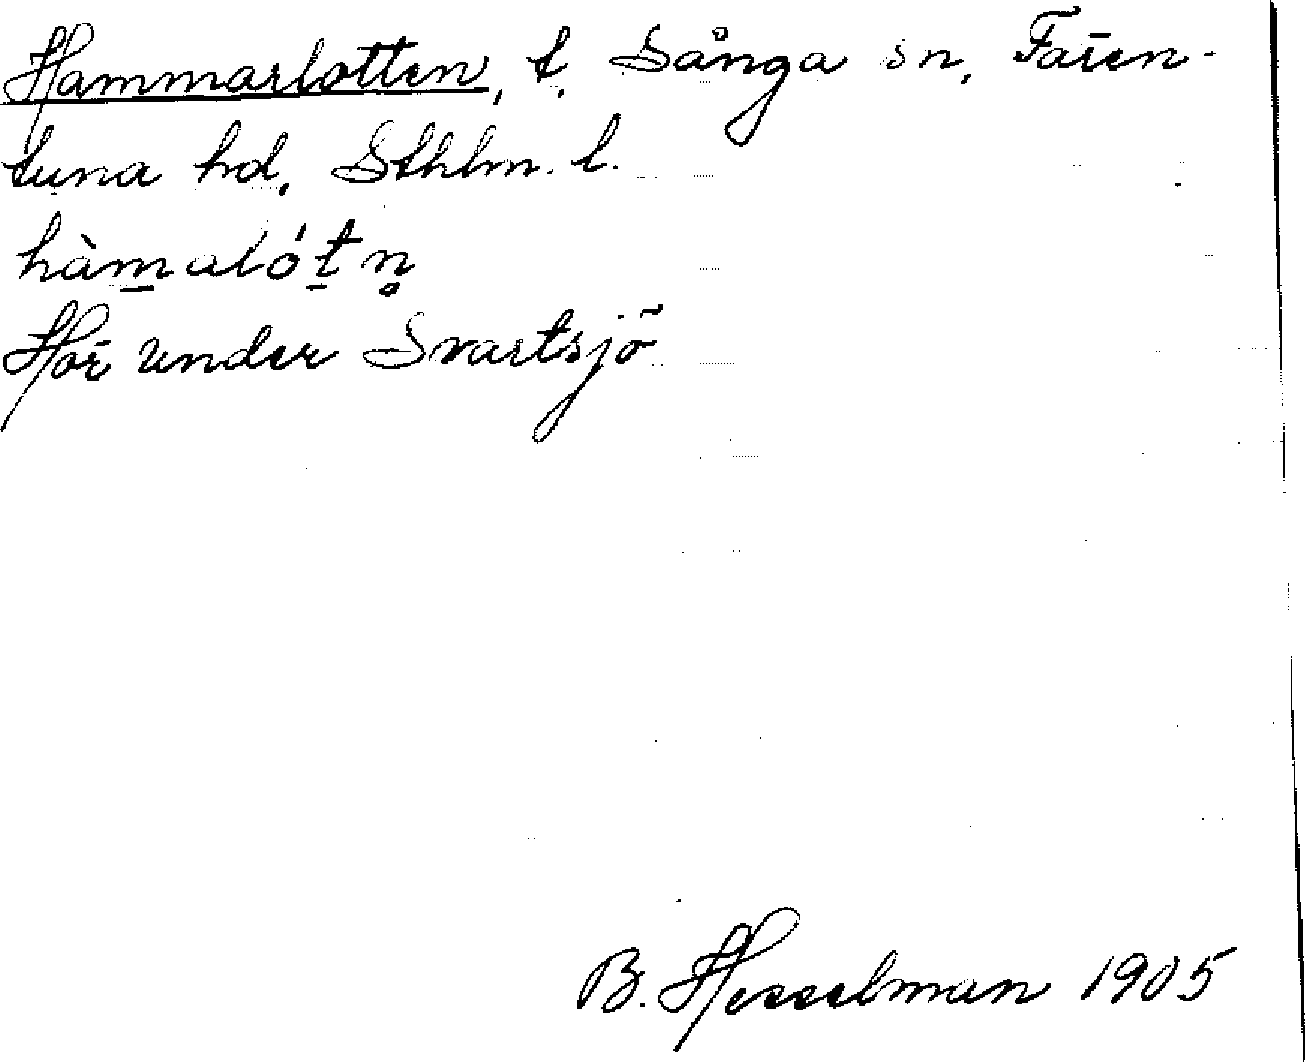 Hammarlotten, t. Sånga sn, Fären-
tuna hd, Sthlm. l.
hàm̲alót̲n̥
Hör under Svartsjö
B. Hesselman 1905